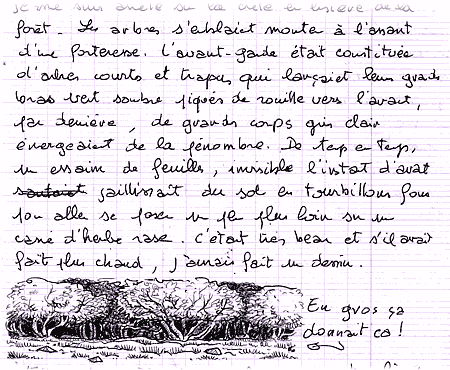 je me suis arrêté sur la crête en lisière de la
forêt. Les arbres s'emblaient monter à l'assaut
d'une forteresse. L'avant-garde était constituée
d'arbres courts et trapus qui lançaient leurs grands
bras vert sombre piqués de rouille vers l'avant,
par derrière, de grands corps gris clair
émergeaient de la pénombre. De temps en temps,
un essaim de feuilles, invisible l'instant d'avant
sautait jaillissait du sol en tourbillons fous
pour aller se poser un peu plus loin sur un
carré d'herbe rase. C'était très beau et s'il avait
fait plus chaud, j'aurais fait un dessin.
En gros ça
donnait ça !